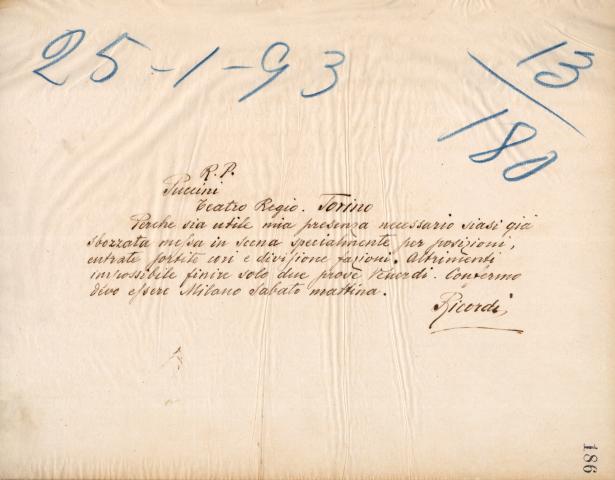 25-1-93
13/180
R. P.
Puccini
Teatro Regio. Torino
Perchè sia utile mia presenza necessario siasi già
sbozzata messa in scena specialmente per posizioni,
entrate sortite cori e divisione fazioni. Altrimenti
impossibile finire solo due prove Venerdi. Confermo
devo essere Milano Sabato mattina.
Ricordi
186